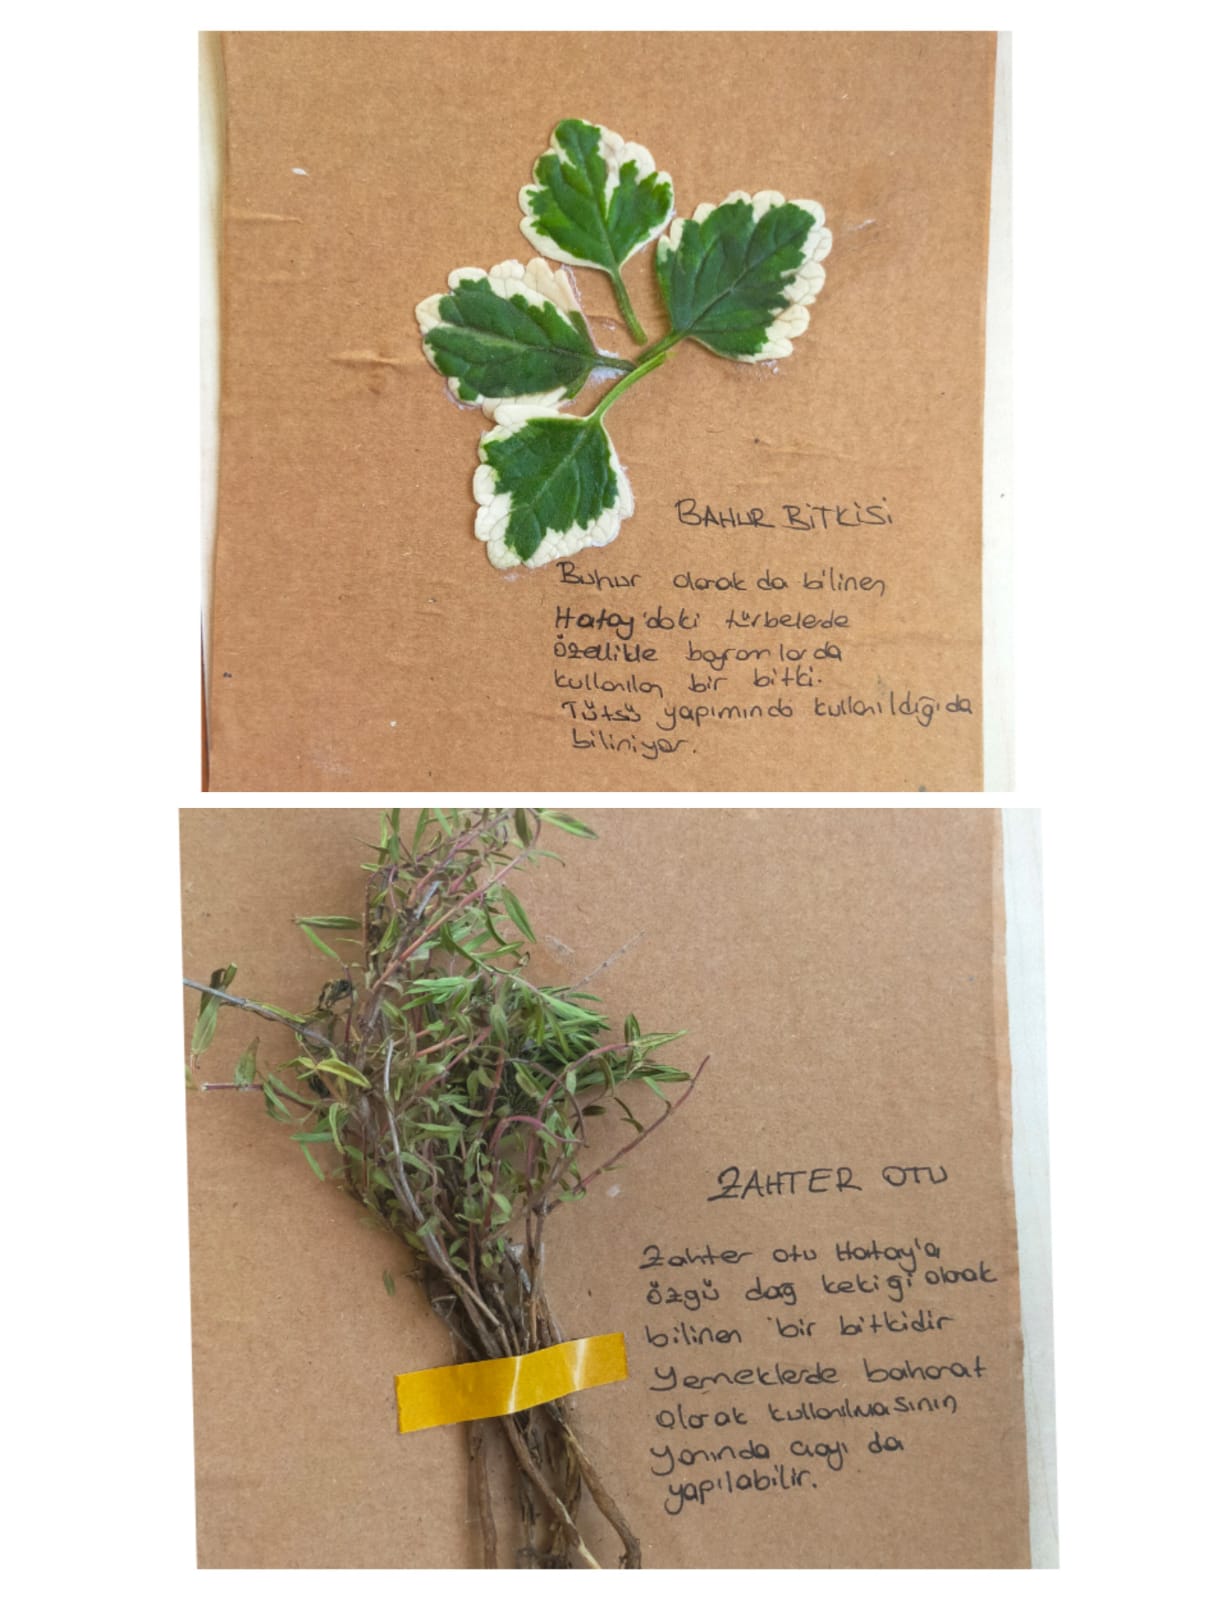 BAHUR BİTKİSİ
Buhur olarak da bilinen
Hatay'daki türbelerde
özellikle bayramlarda
kullanılan bir bitki.
Tütsü yapımında kullanıldığı da
biliniyor.
ZAHTER OTU
Zahter otu Hatay'a
özgü dağ kekiği olarak
bilinen bir bitkidir
Yemeklerde baharat
olarak kullanılmasının
yanında çayı da
yapılabilir.